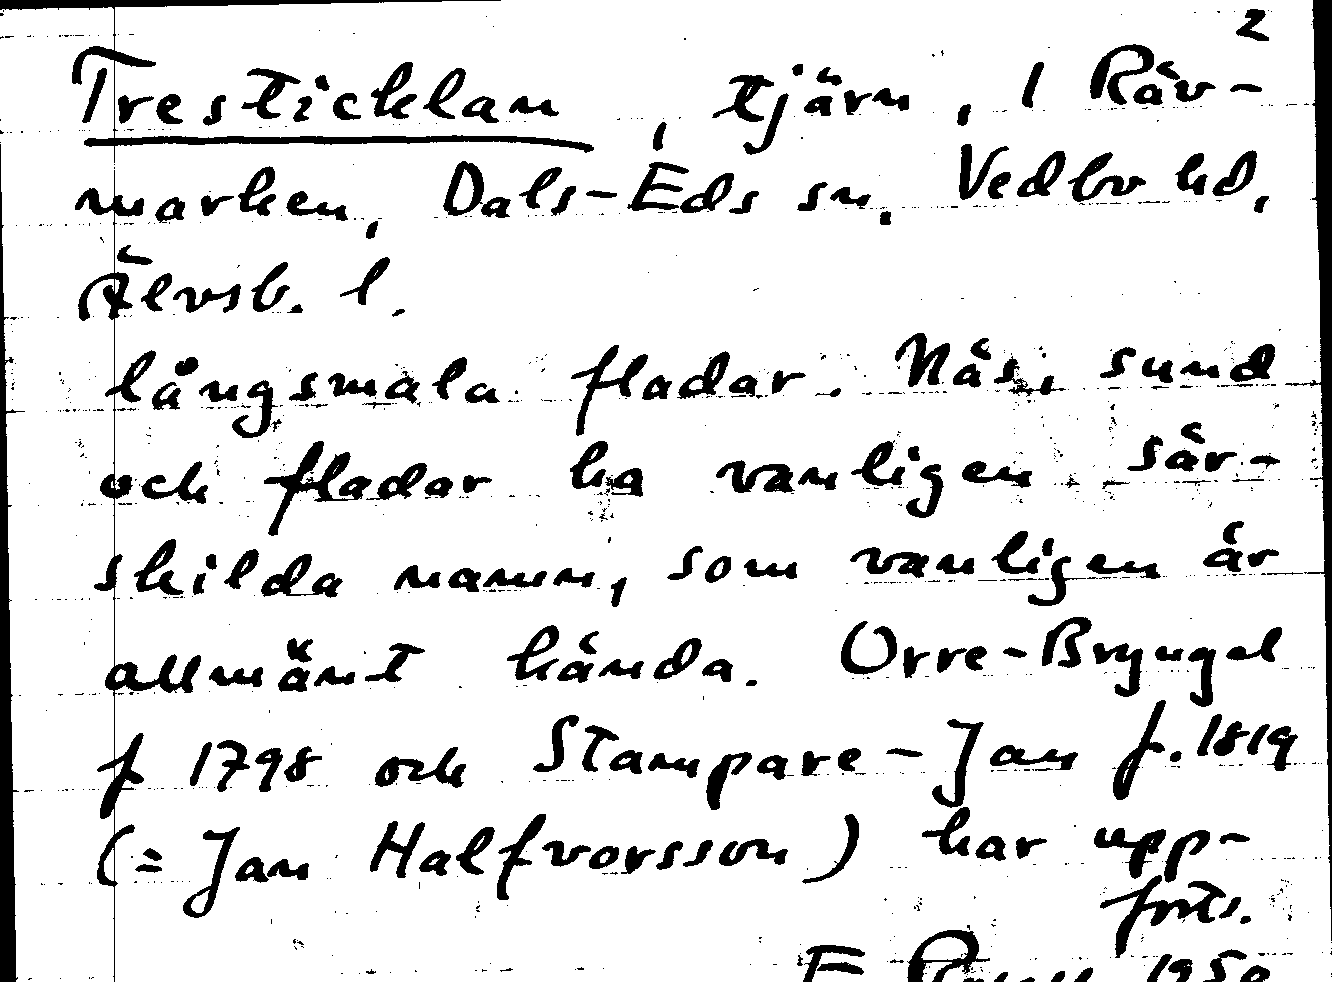 2
Tresticklan, tjärn, i Räv-
marken, Dals-Eds sn, Vedbo hd,
Älvsb. l.
långsmala fladar. Näs, sund
och fladar ha vanligen sär-
skilda namn, som vanligen är
allmänt kända. Orre-Bryngel
f 1798 och Stampare-Jan f. 1819
(= Jan Halfvorsson) har upp-
forts.
E 1950